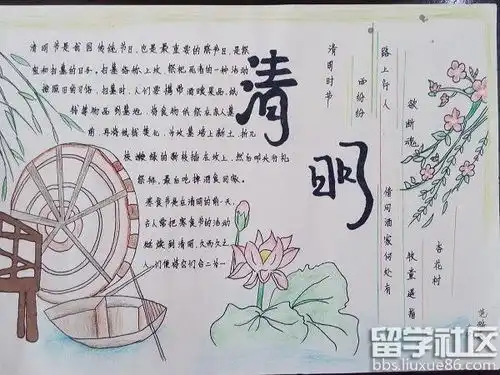 清明节是我国传统节日，也是最重要的祭节日，是祭
祖和扫墓的日子。扫墓俗称上坟，祭祀死者的一种活动
按照旧的习俗，扫墓时，人们要携带酒食果品，纸
钱等物品到墓地，将食物供祭在亲人墓
前，再将纸钱焚化，为坟墓培上新土，折几
枝嫩绿的新枝插在坟上，然后叩头行礼
祭拜，最后吃掉酒食回家。
寒食节是在清明的前一天，
古人常把寒食节的活动
延续到清明，久而久之
人们便将它们合二为一
清明
清明时节
雨纷纷
路上行人
欲断魂
借问酒家何处有
牧童遥指
杏花村
留学社区
bbs.liuxue86.com